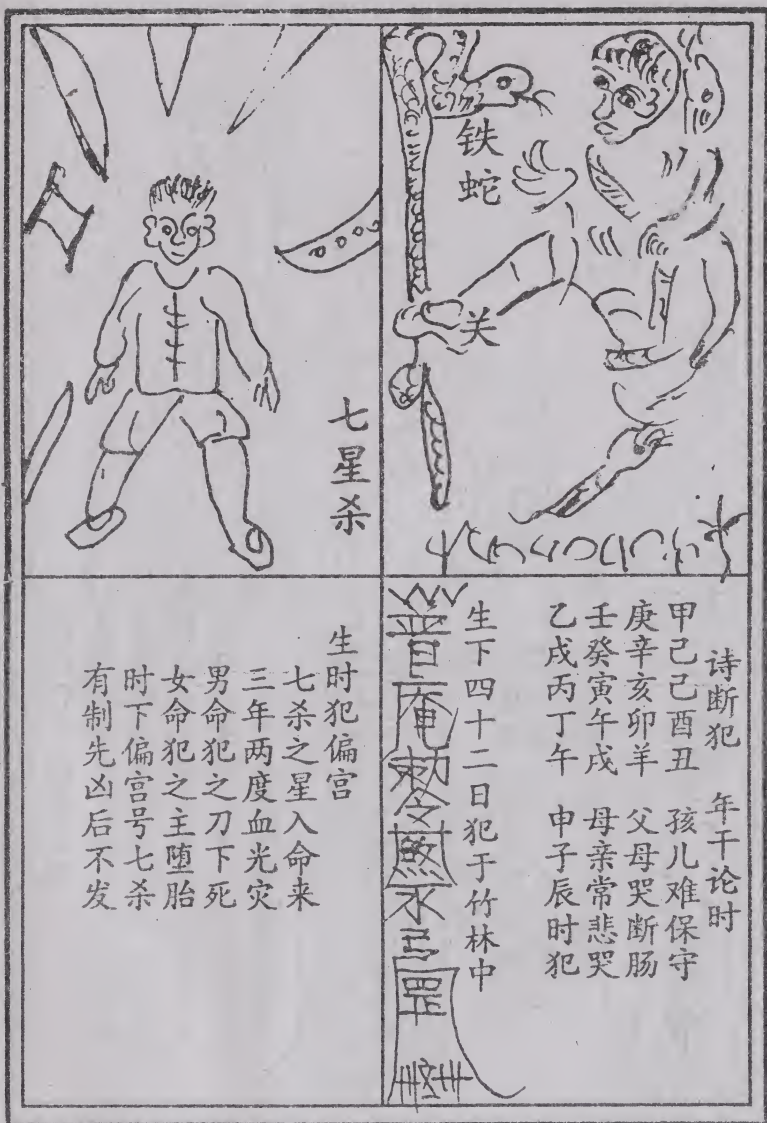 铁蛇
关
诗断犯 年干论时
甲己己酉丑 孩儿难保守
庚辛亥卯羊 父母哭断肠
壬癸寅午戌 母亲常悲哭
乙戌丙丁午 申子辰时犯
生下四十二日犯于竹林中
普庵敕令
七星杀
生时犯偏宫
七杀之星入命来
三年两度血光灾
男命犯之刀下死
女命犯之主堕胎
时下偏宫号七杀
有制先凶后不发